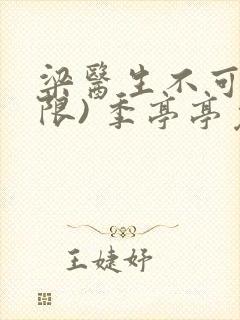 梁醫生不可
限)季亭亭
王婕妤